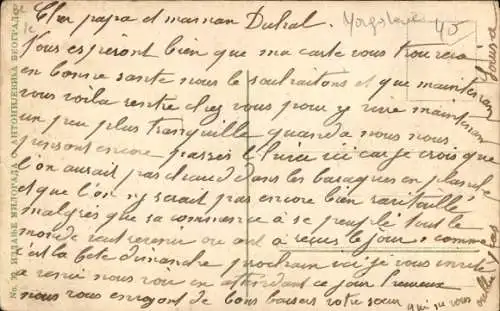 Cher papa et maman Duhal.
Yougoslavie 45
Nous espéront bien que ma carte vous trouvera
en bonne santé nous le souhaitons et que maintenant
vous voila rentré chez vous pour y vivre maintenant
un peu plus tranquille quand a nous nous
pensont encore passés l'hiver ici car je crois que
l'on aurait pas chaud dans les baraques en planche
et que l'on n'y serait pas encore bien ravitaillé
malgrés que sa commence à se peuplé tout le
monde veut revenir ou ont a reçus le jour comme
c'est la fete dimanche prochain ici je vous invite
a venir nous voir en attendant ce jour heureux
nous vous envoyont de bons baisers votre sœur
qui ne vous
oublie pas
Louisa
No. ИЗДАЊЕ МИЛОРАДА С. АНТОНИЈЕВИЋА БЕОГРАД